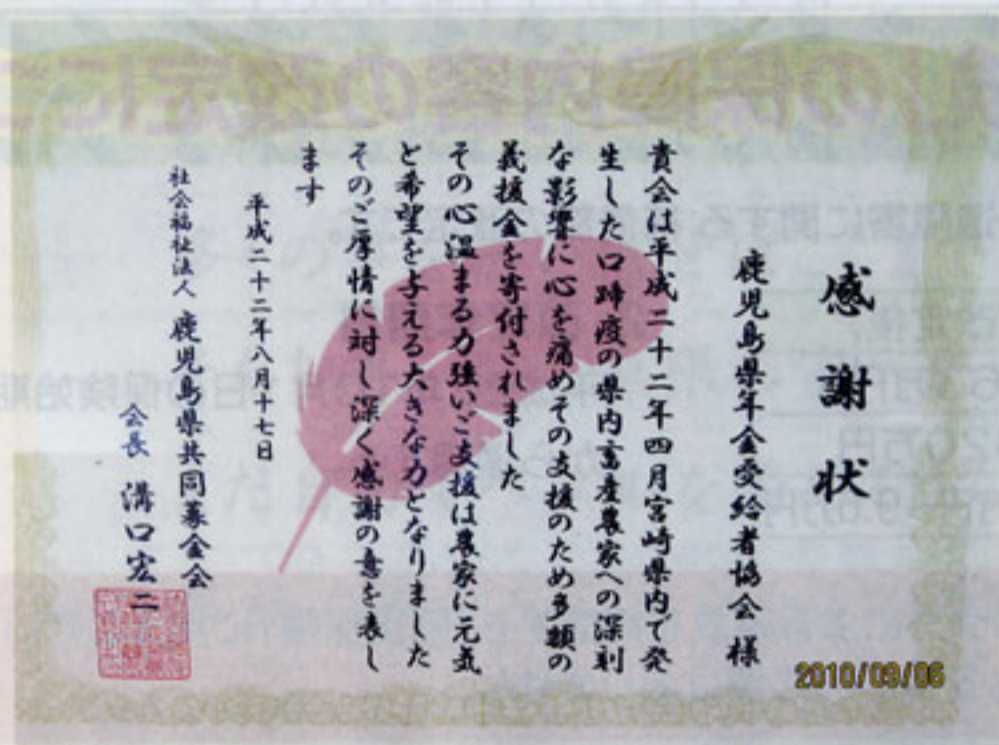 感謝状
鹿児島県年金受給者協会 様
貴会は平成二十二年四月宮崎県内で発
生した口蹄疫の県内畜産農家への深刻
な影響に心を痛めその支援のため多額の
義援金を寄付されました
その心温まる力強いご支援は農家に元気
と希望を与える大きな力となりました
そのご厚情に対し深く感謝の意を表し
ます
平成二十二年八月十七日
社会福祉法人 鹿児島県共同募金会
会長 溝口宏二
2010/09/06